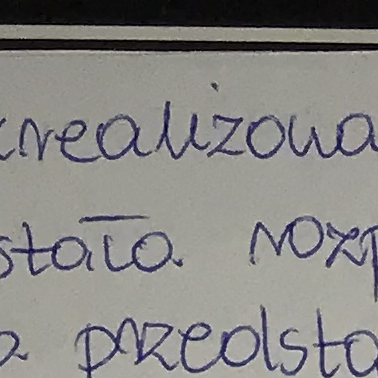 zrealizowa
stała rozp
a przedsta